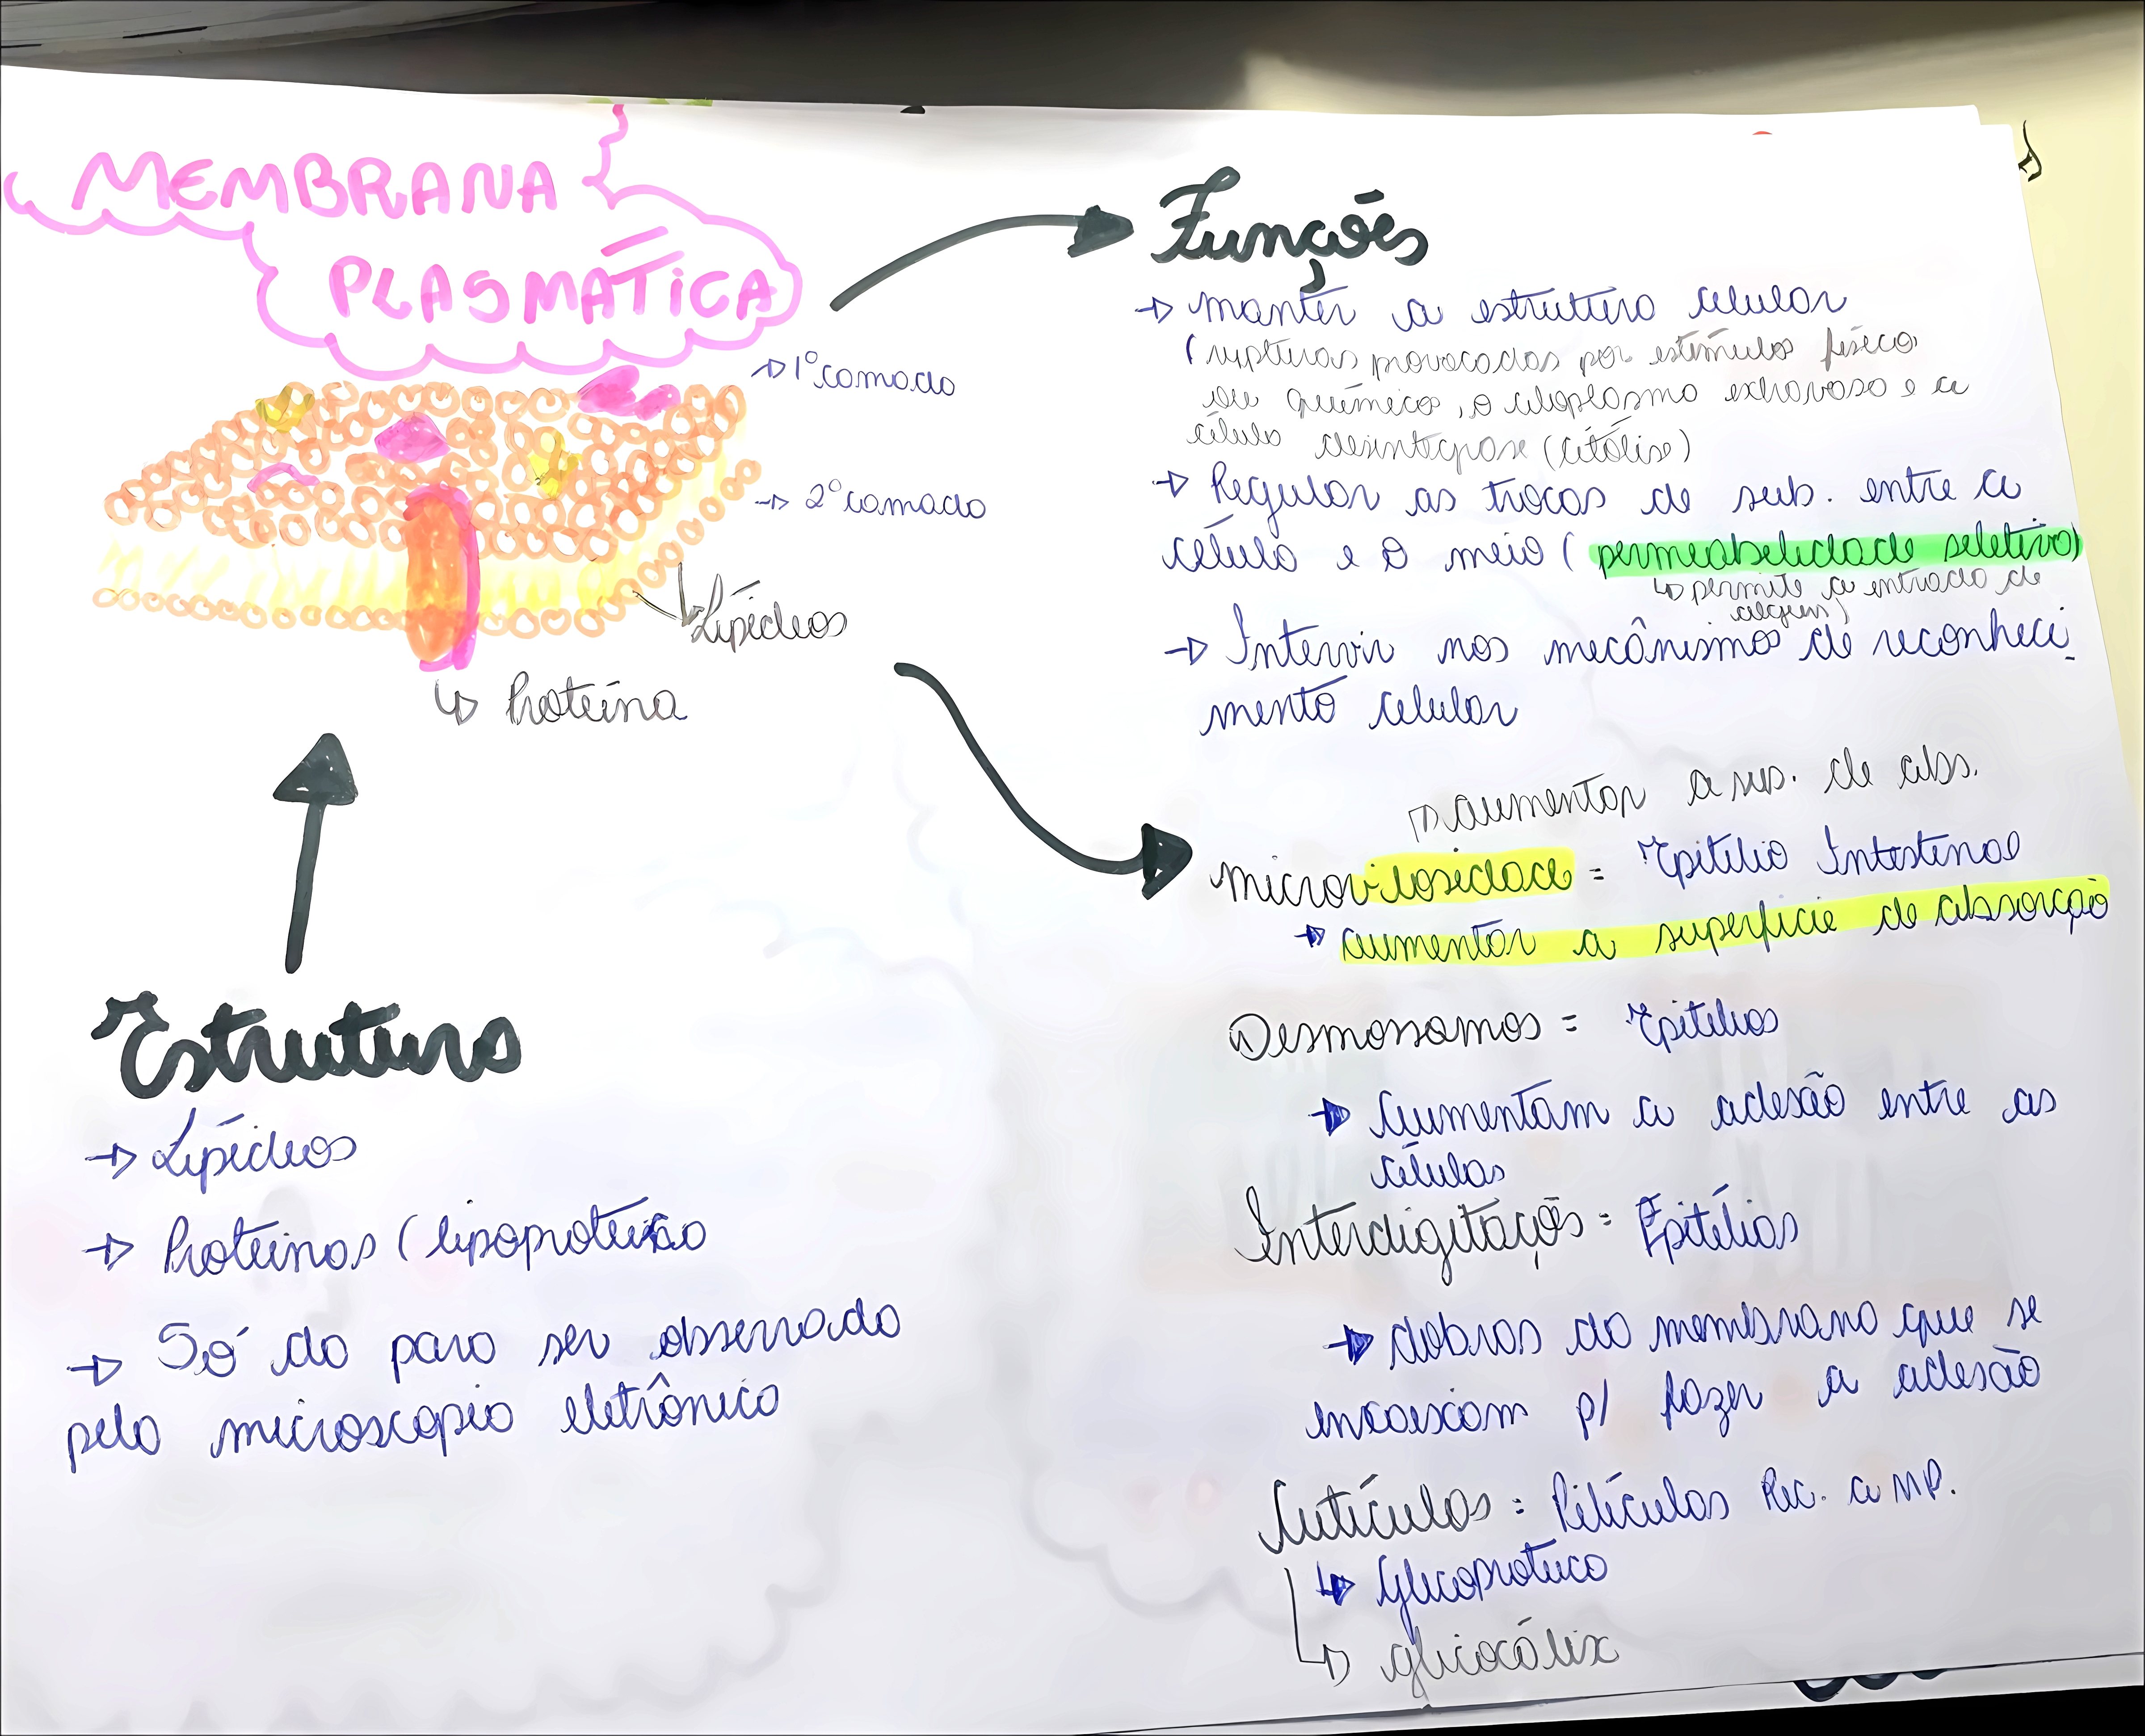 MEMBRANA
PLASMÁTICA
→ 1º camada
→ 2º camada
Lipídeos
↳ Proteína
Estrutura
→ Lipídeos
→ Proteínas (lipoproteica
→ Só da para ser observada
pelo microscopio eletrônico
Funções
→ manter a estrutura celular
(rupturas provocadas por estímulos físico
ou químico, o citoplasma extravasa e a
célula desintegrase (citólise)
→ Regular as trocas de sub. entre a
célula e o meio (permeabilidade seletiva)
↳ permite a entrada de
alguns)
→ Intervir nos mecânismos de reconheci
mento celular
↱ aumentar a sup. de abs.
microvilosidade = Epitélio Intestinal
→ aumentar a superfície de absorção
Desmossomos = Epitélios
→ Aumentam a adesão entre as
células
Interdigitações = Epitélios
→ dobras da membrana que se
encaixam p/ fazer a adesão
Cutículas = Películas Rec. a MP.
↳ Glicoproteica
↳ glicocálix